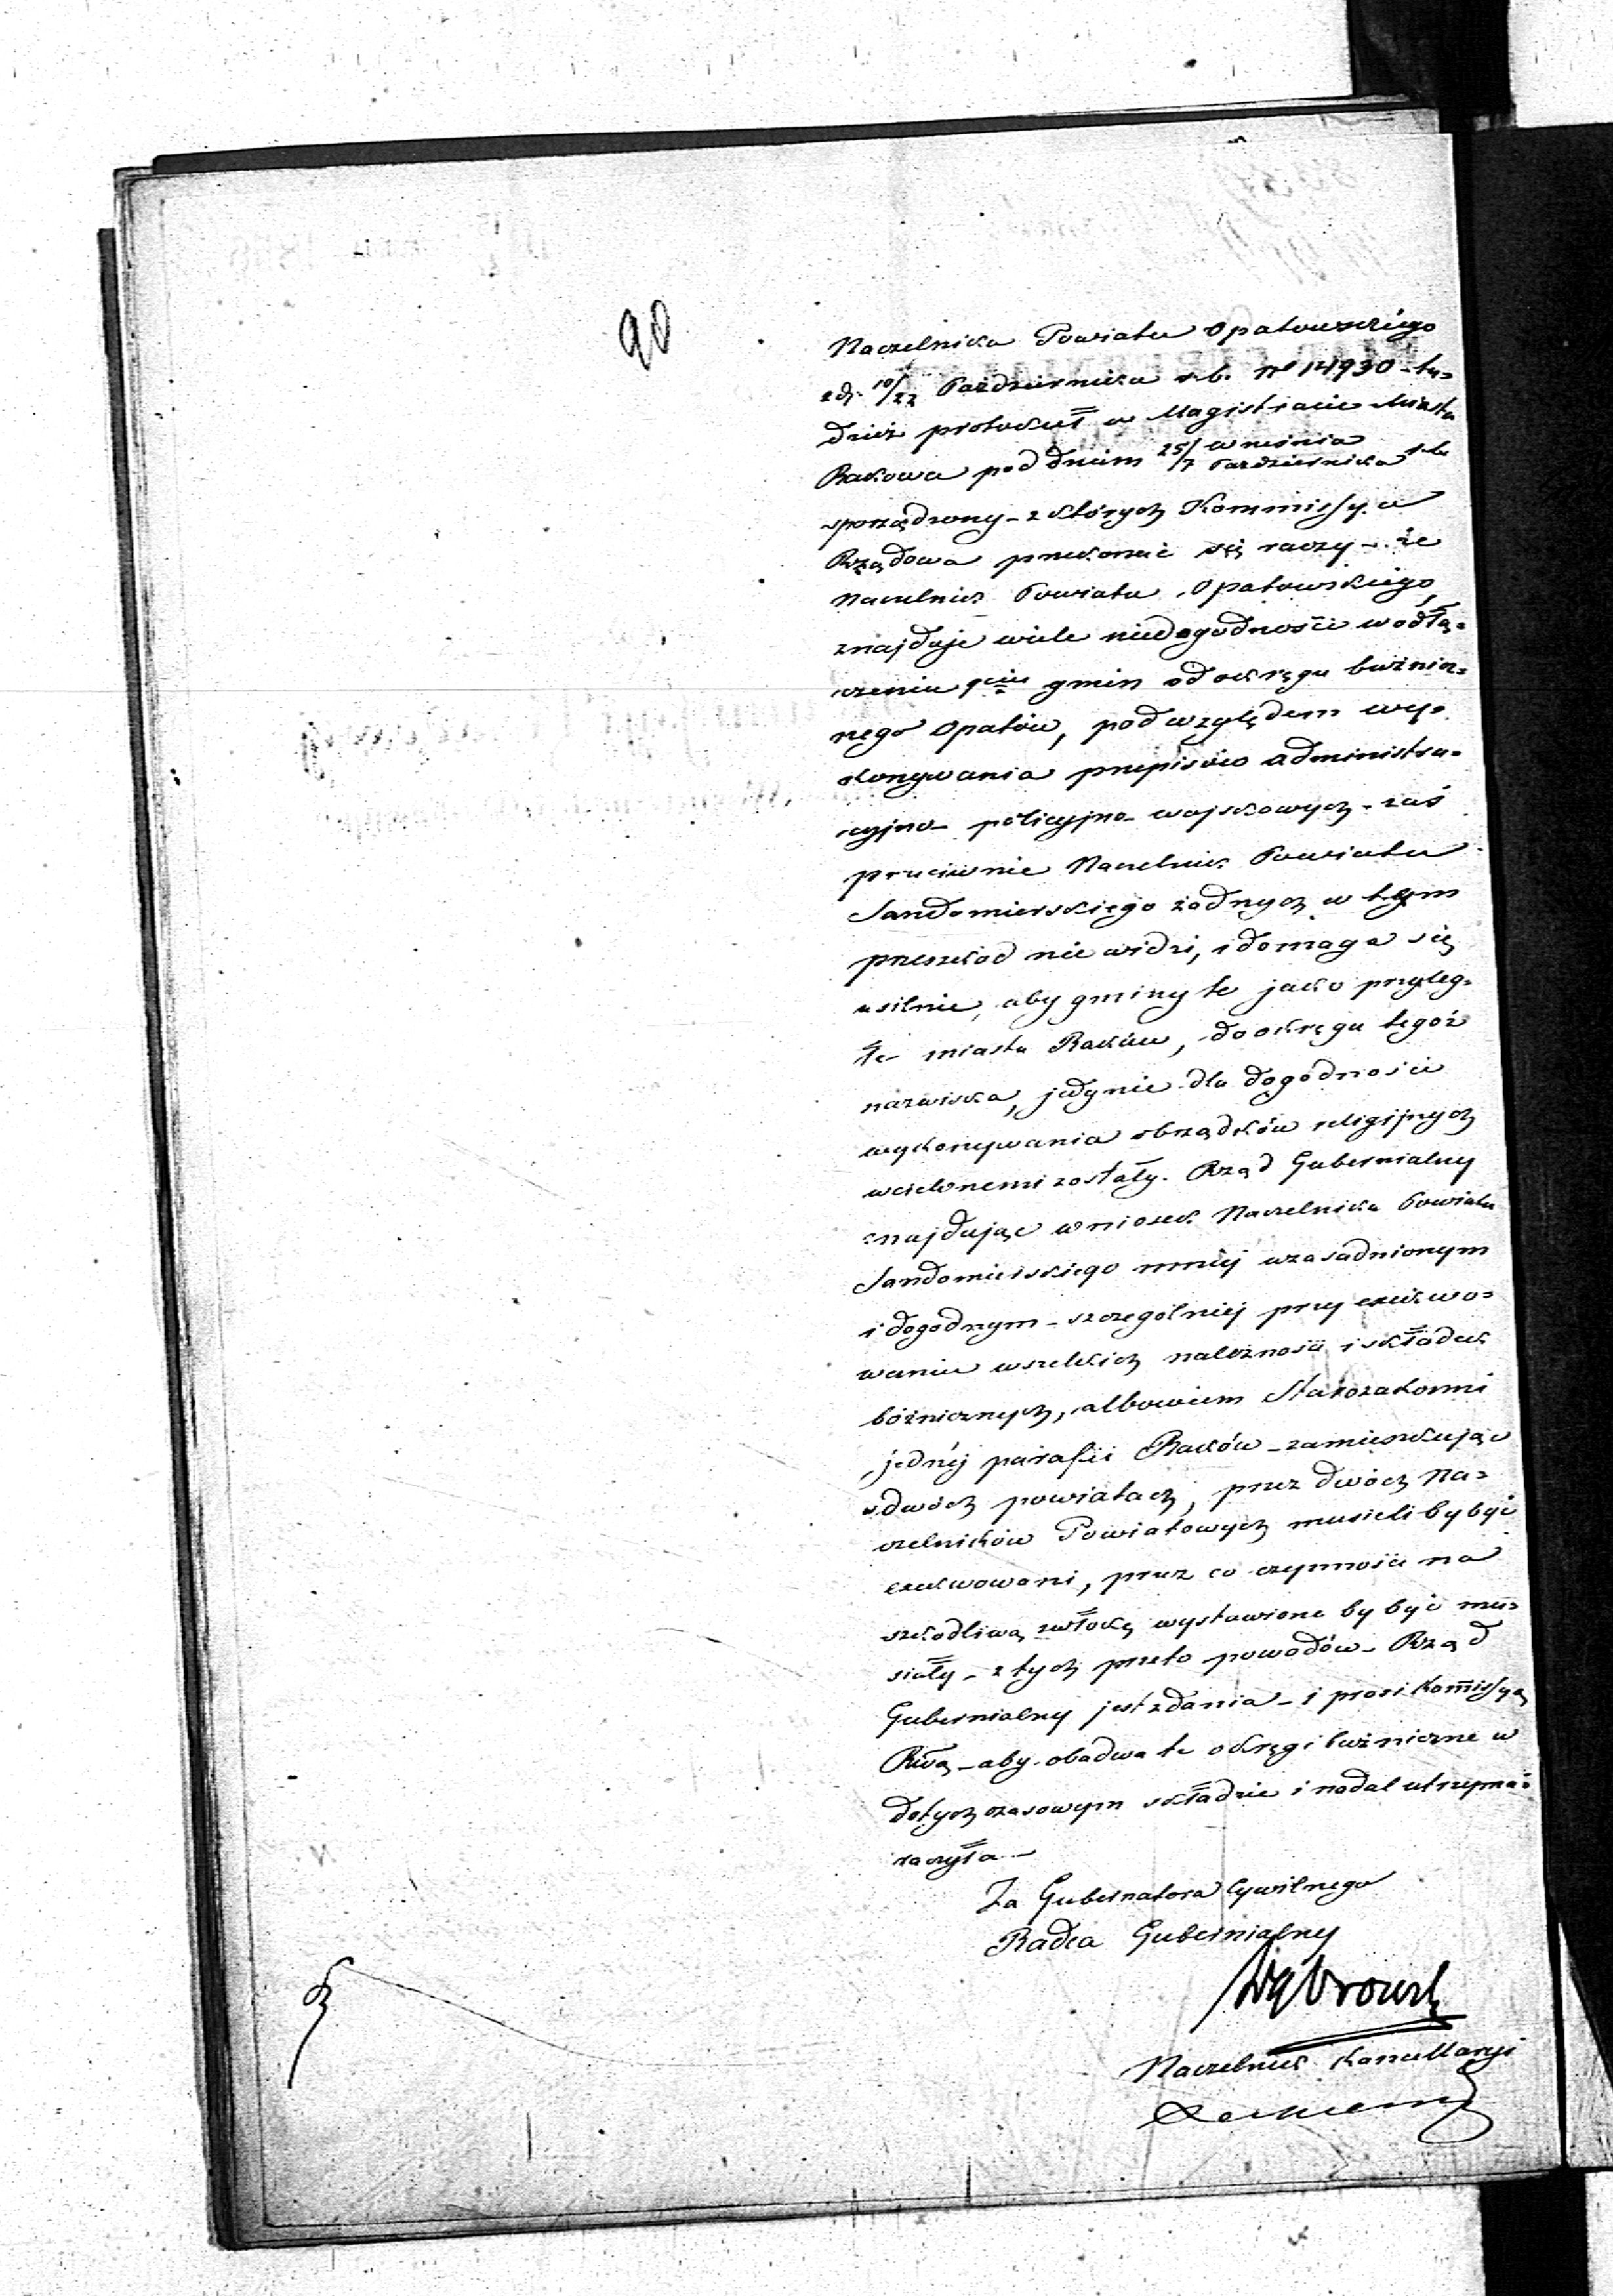 90
Naczelnika Powiatu Opatowskiego
z dj. 10/22 Października r.b. No 14930 - tu=
dzież protokuł w Magistracie Miasta
Rakowa pod dniem 25/7 Września/Października r.b.
sporządzony - z których Kommissya
Rządowa przekonać się raczy - że
Naczelnik Powiatu Opatowskiego,
znajduje wiele niedogodności w odłą=
czeniu 9ciu gmin od okręgu bużnicz=
nego Opatów, pod względem wy=
konywania przepisów administra=
cyjno - policyjno - wojskowych - zaś
przeciwnie Naczelnik Powiatu
Sandomierskiego żadnych w tym
przeszkód nie widzi, i domaga się
usilnie, aby gminy te jako przyleg=
łe miastu Raków, do okręgu tegoż
nazwiska, jedynie dla dogodności
wykonywania obrządków religijnych
wcielonemi zostały. Rząd Gubernialny
znajdując wniosek Naczelnika Powiatu
Sandomierskiego mniéj uzasadnionym
i dogodnym - szczególniéj przy exekwo=
waniu wszelkich należności i składek
bóżnicznych, albowiem Starozakonni
jednéj parafii Raków - zamieszkując
w dwóch powiatach, przez dwóch Na=
czelników Powiatowych musieli by być
exekwowani, przez co czynności na
szkodliwą zwłokę wystawione by być mu=
siały - z tych przeto powodów - Rząd
Gubernialny jest zdania - i prosi Kom̄issyą
Rwą - aby obadwa te okręgi bużniczne w
dotychczasowym składzie i nadal utrzymać
raczyła -
Za Gubernatora Cywilnego
Radca Gubernialny
Naczelnik Kancellaryi